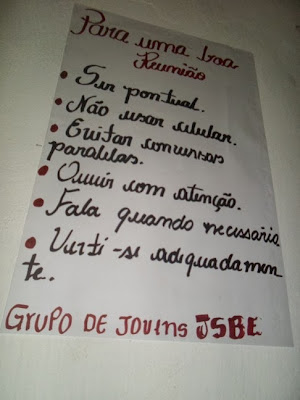 Para uma boa
Reunião
• Ser pontual.
• Não usar celular.
• Evitar conversas
paralelas.
• Ouvir com atenção.
• Fala quando necessaria
• Vesti-se adequadamen
te.
GRUPO DE JOVENS JSBE